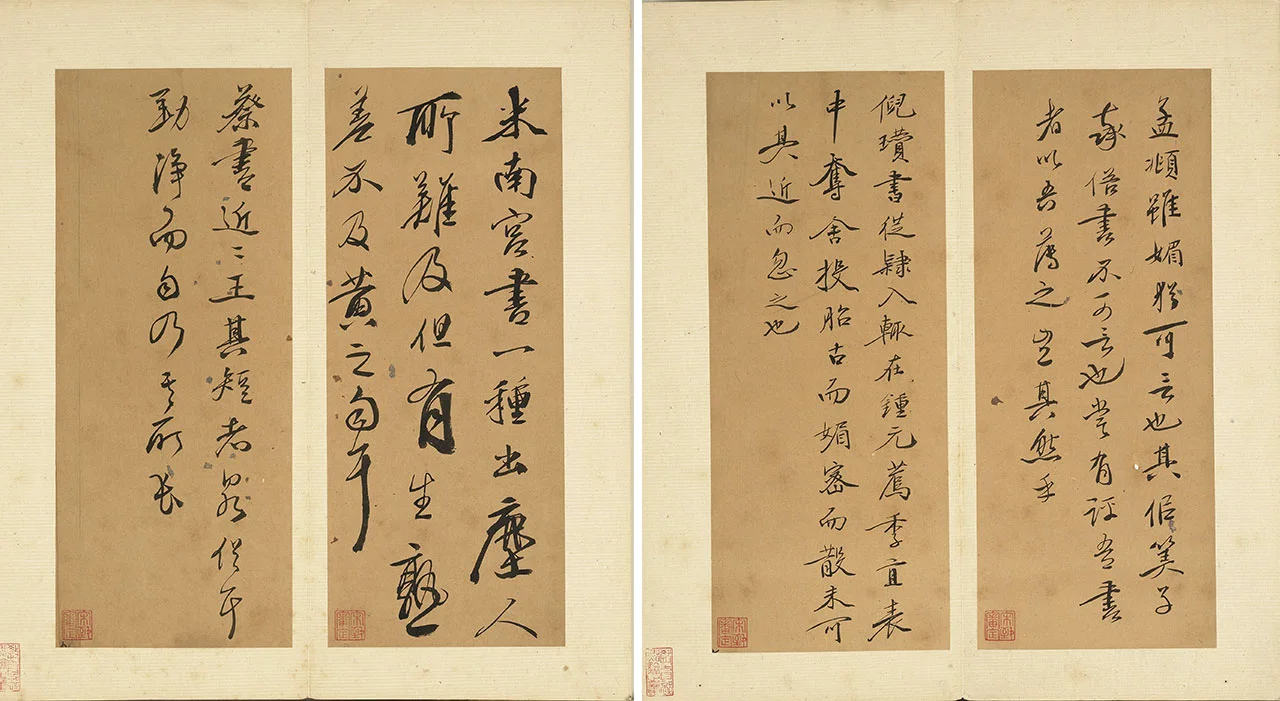 孟頫雖媚猶可言也其似算子
率俗書不可言也嘗有評吾書
者以吾薄之豈其然乎
倪瓚書從隸入輒在鍾元薦季直表
中奪舍投胎古而媚密而散未可
以其近而忽之也
米南宮書一種出塵人
所難及但有生熟
差不及黃之勻耳
蔡書近二王其短者略俗耳
勁淨而勻乃其所長